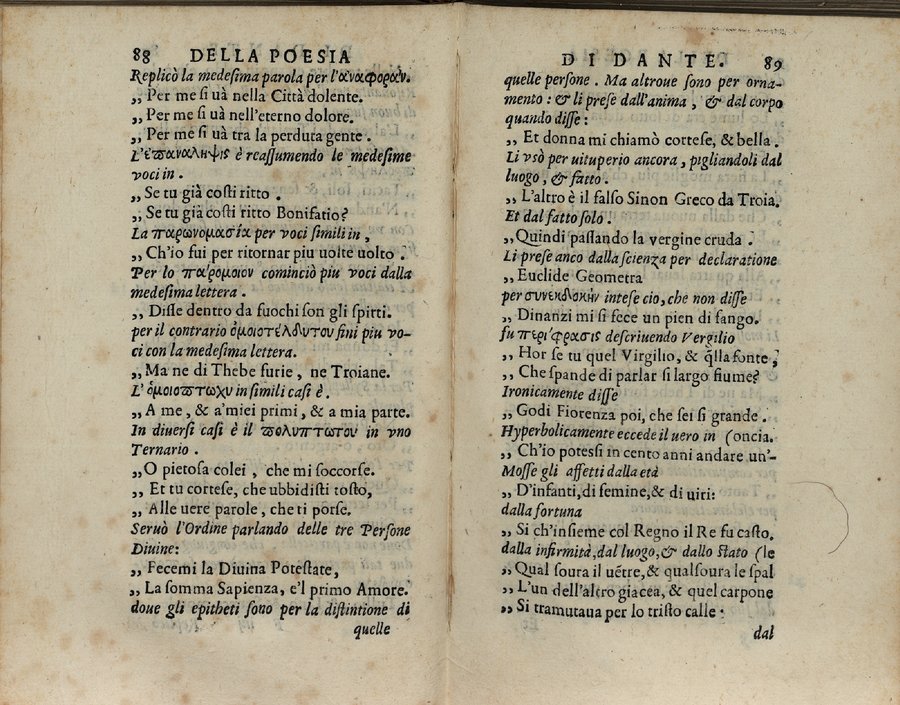 88 DELLA POESIA
Replicò la medeſima parola per l'αναφοραν.
,, Per me ſi uà nella Città dolente.
,, Per me ſi uà nell'eterno dolore.
,, Per me ſi uà tra la perduta gente .
L'ἐπαναληψις è reaſſumendo le medeſime
voci in .
,, Se tu già coſti ritto .
,, Se tu già coſti ritto Bonifatio?
La παρωνομασία per voci ſimili in ,
,, Ch'io fui per ritornar piu uolte uolto .
Per lo παρομοιον cominciò piu voci dalla
medeſima lettera .
,, Diſſe dentro da fuochi ſon gli ſpirti.
per il contrario ὁμοιοτέλδυτον finì piu vo-
ci con la medeſima lettera.
,, Ma ne di Thebe furie , ne Troiane.
L' ὁμοιοπτωχυ in ſimili caſi è .
,, A me , & a'miei primi , & a mia parte.
In diuerſi caſi è il πολυπτωτον in vno
Ternario .
,, O pietoſa colei , che mi ſoccorſe.
,, Et tu corteſe, che ubbidiſti toſto,
,, Alle uere parole , che ti porſe.
Seruò l'Ordine parlando delle tre Perſone
Diuine:
,, Fecemi la Diuina Poteſtate,
,, La ſomma Sapienza, e'l primo Amore.
doue gli epitheti ſono per la diſtintione di
quelle
DI DANTE. 89
quelle perſone . Ma altroue ſono per orna-
mento : & li preſe dall'anima , & dal corpo
quando diſſe :
,, Et donna mi chiamò corteſe, & bella .
Li vsò per uituperio ancora , pigliandoli dal
luogo , & fatto .
,, L'altro è il falſo Sinon Greco da Troia.
Et dal fatto ſolo .
,, Quindi paſſando la vergine cruda .
Li preſe anco dalla ſcienza per declaratione
,, Euclide Geometra
per συνεκδοκὴν inteſe ciò, che non diſſe
,, Dinanzi mi ſi fece un pien di fango.
fu περίφρασις deſcriuendo Vergilio
,, Hor ſe tu quel Virgilio, & q̃lla fonte ,
,, Che ſpande di parlar ſi largo fiume?
Ironicamente diſſe
,, Godi Fiorenza poi, che ſei ſi grande .
Hyperbolicamente eccede il uero in (oncia.
,, Ch'io poteſſi in cento anni andare un'-
Moſſe gli affetti dalla età
,, D'infanti, di femine, & di uiri:
dalla fortuna
,, Si ch'inſieme col Regno il Re fu caſto.
dalla infirmità, dal luogo, & dallo ſtato (le
,, Qual ſoura il uẽtre, & qual ſoura le ſpal
,, L'un dell'altro giacea, & quel carpone
,, Si tramutaua per lo triſto calle .
dal